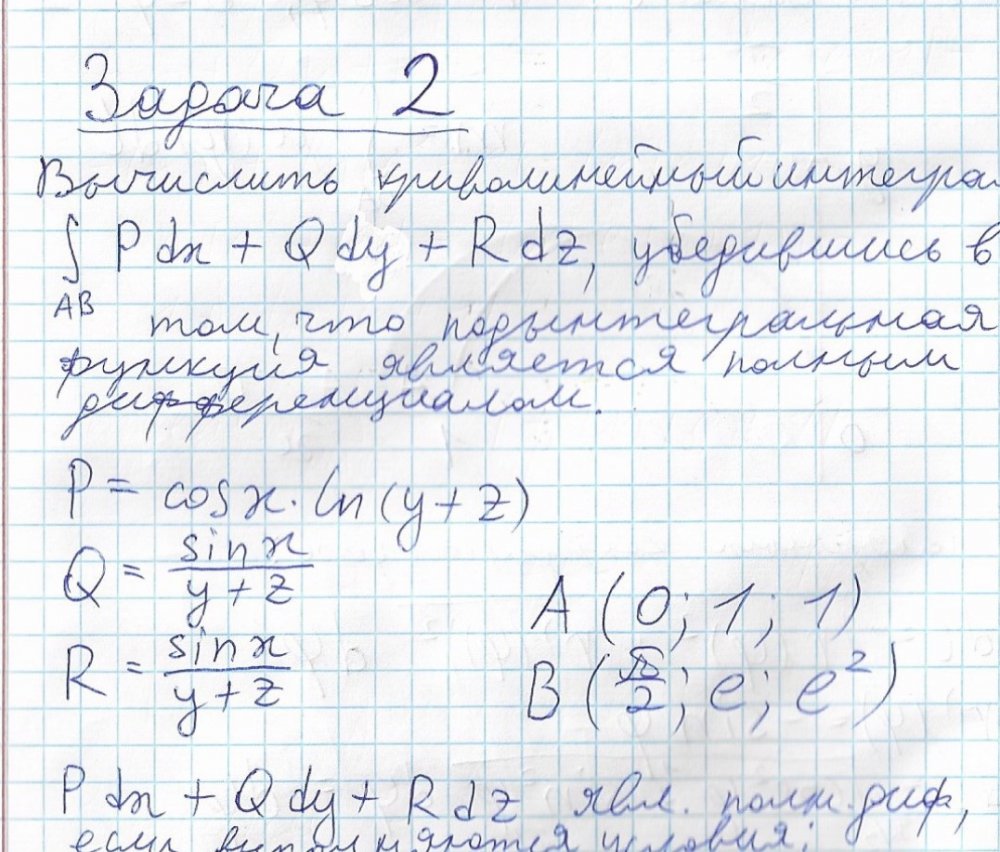 Задача 2
Вычислить криволинейный интеграл
∫ P dx + Q dy + R dz, убедившись в
AB
том, что подынтегральная
функция является полным
дифференциалом.
P = cos x · ln (y + z)
Q = sin x / y + z
R = sin x / y + z
A (0; 1; 1)
B (π/2; e; e²)
P dx + Q dy + R dz явл. полн. диф,
если выполняются условия: